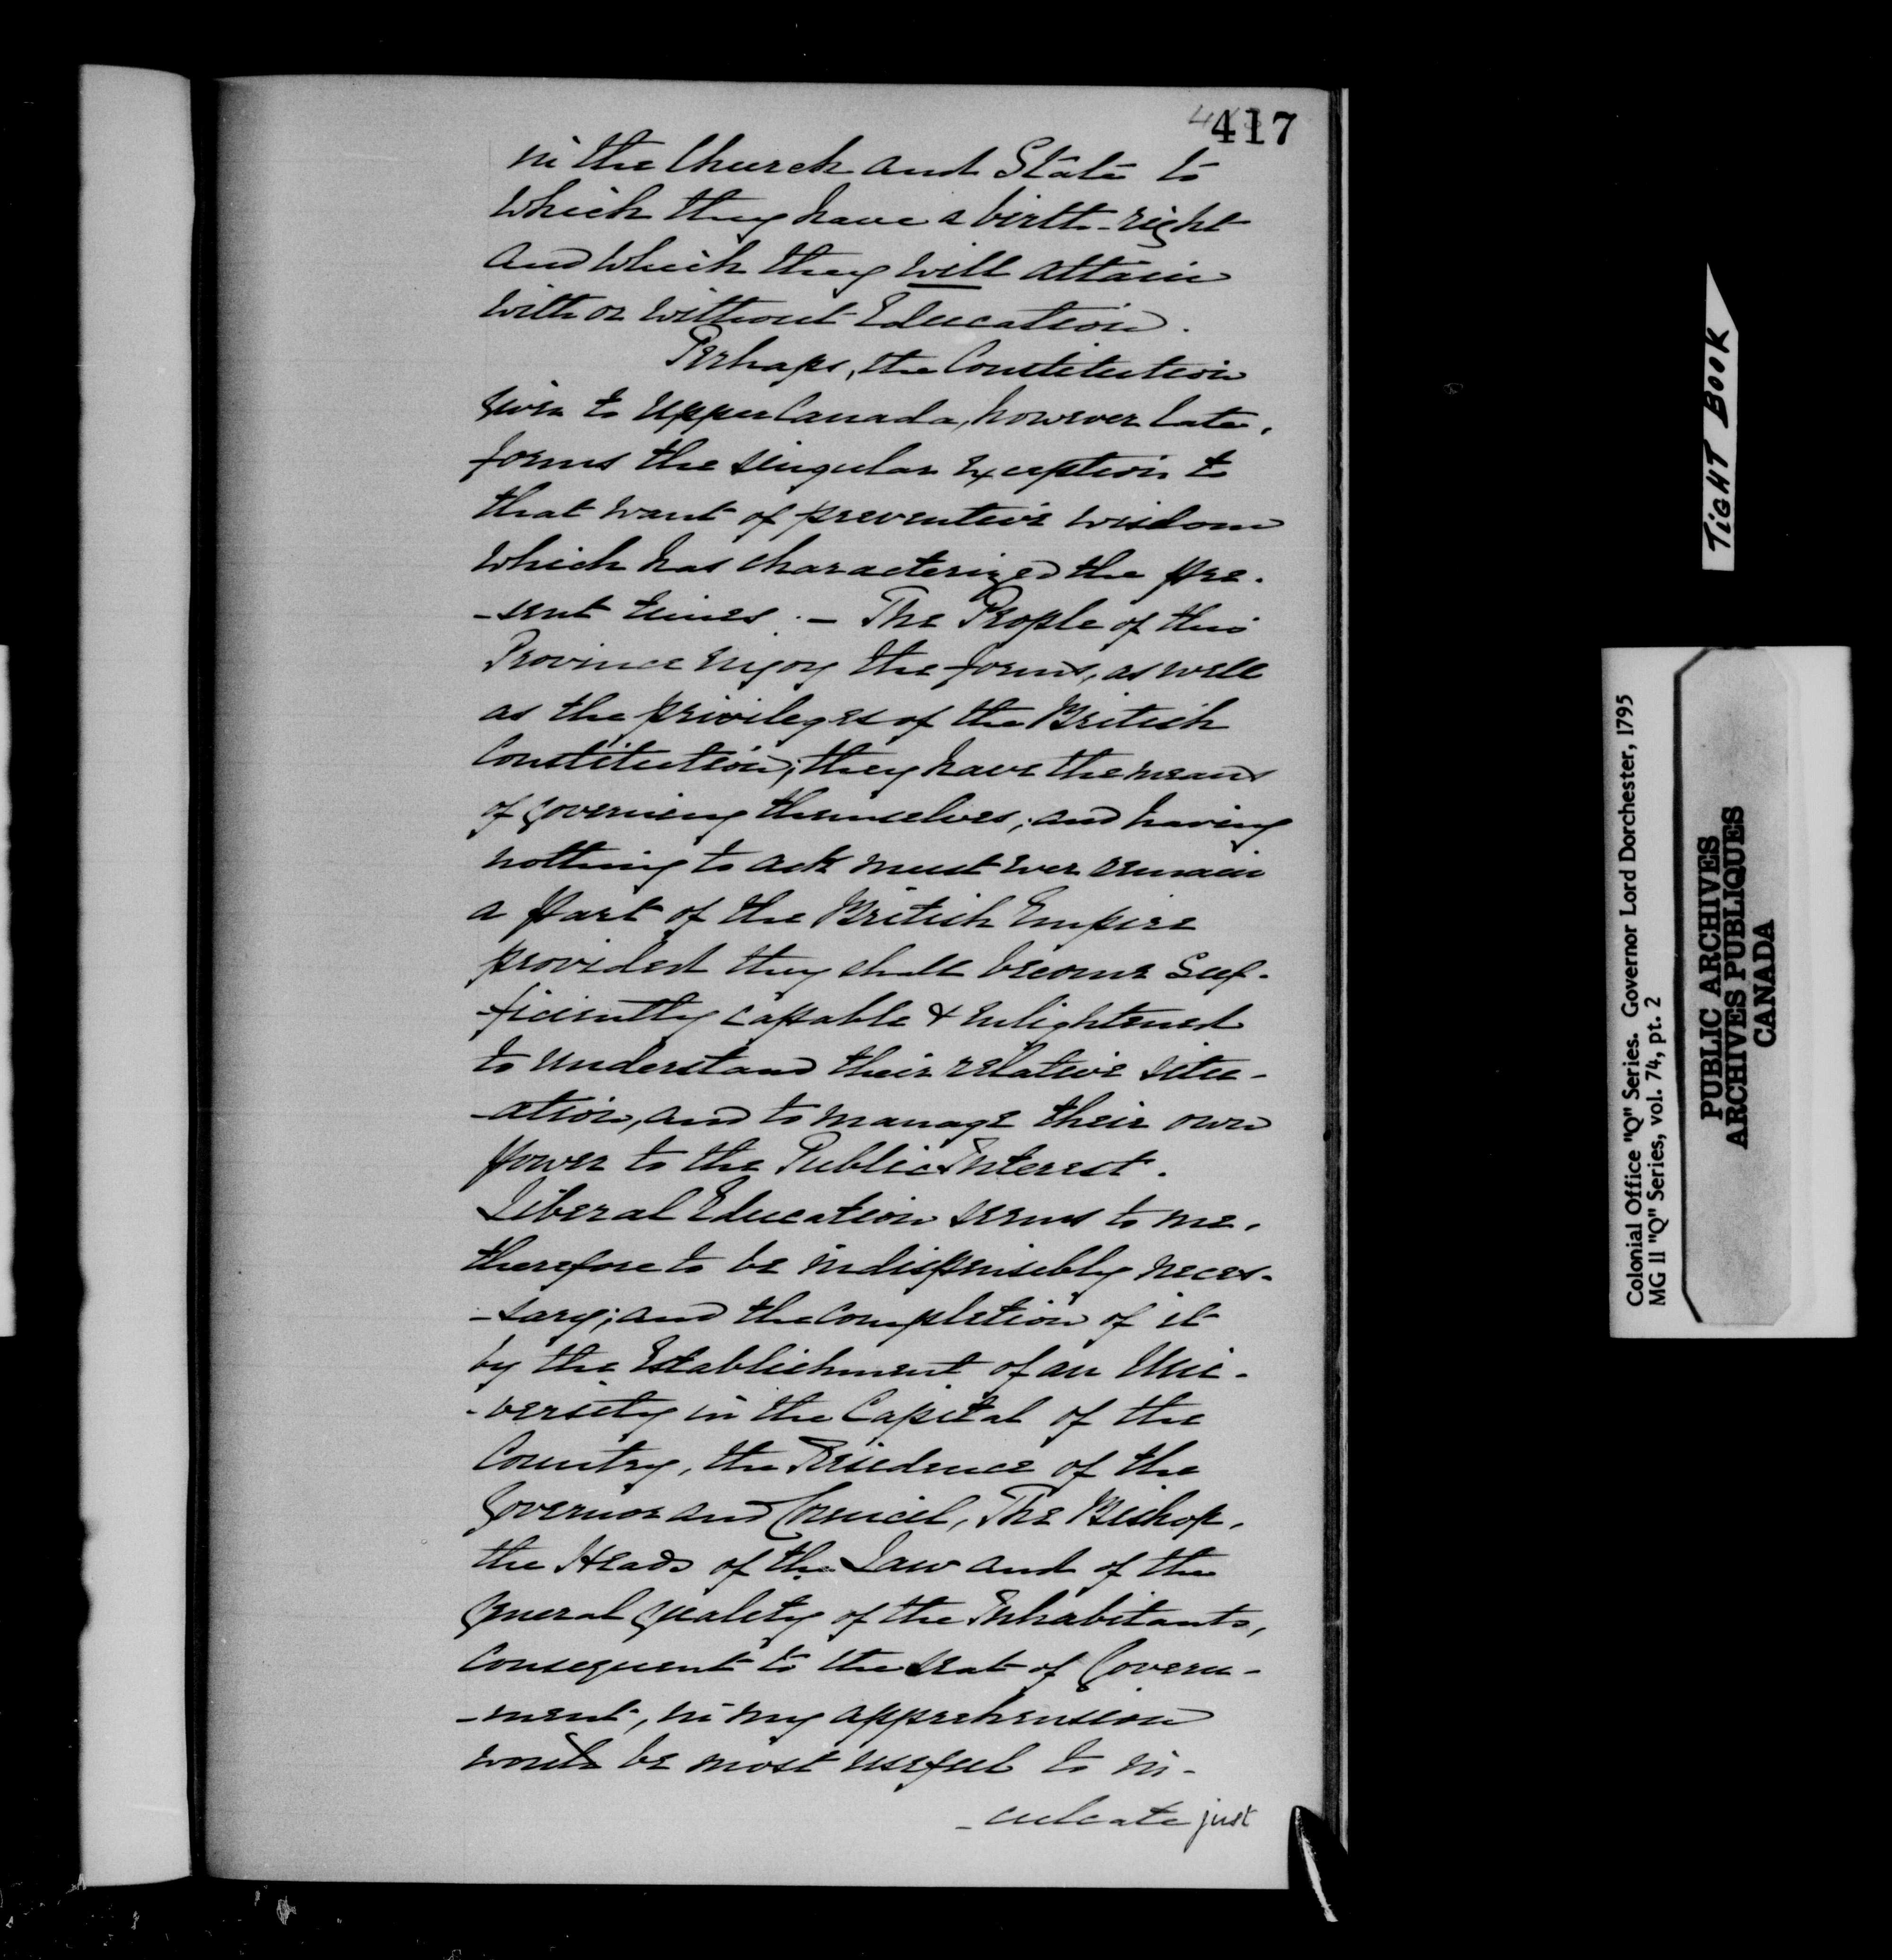 417
in the Church and State to
which they have a birth-right
and which they will attain
with or without Education.
Perhaps, the Constitution
given to Upper Canada, however late,
forms the singular exception to
that want of preventive wisdom
which has characterized the pre-
-sent times. - The People of this
Province enjoy the forms, as well
as the privileges of the British
Constitution; they have the means
of governing themselves; and having
nothing to ask must ever remain
a part of the British Empire
provided they shall become suf-
-ficiently capable & enlightened
to understand their relative situ-
-ation, and to manage their own
power to the Public Interest.
Liberal Education seems to me,
therefore to be indispensibly neces-
-sary; and the completion of it
by the Establishment of an Uni-
-versity in the Capital of the
Country, the Residence of the
Governor and Council, The Bishop,
the Heads of the Law and of the
General quality of the Inhabitants,
consequent to the seat of Govern-
-ment, in my apprehension
would be most useful to in-
-culcate just
TIGHT BOOK
Colonial Office "Q" Series. Governor Lord Dorchester, 1795
MG 11 "Q" Series, vol. 74, pt. 2
PUBLIC ARCHIVES
ARCHIVES PUBLIQUES
CANADA